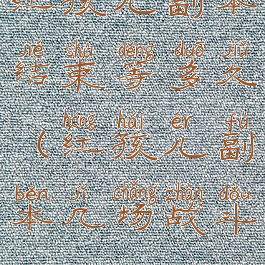 红孩儿副本
jié shù děng duō jiǔ
结束等多久
hóng hái ér fù
(红孩儿副
běn jǐ chǎng zhàn dòu
本几场战斗